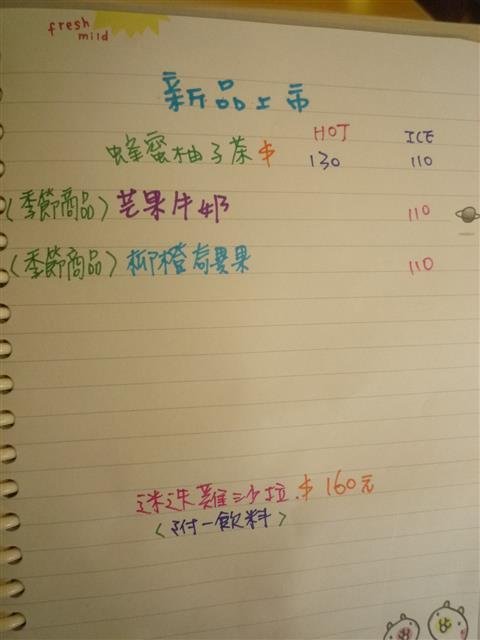 fresh
mild
新品上市
HOT ICE
蜂蜜柚子茶 $ 130 110
(季節商品) 芒果牛奶 110
(季節商品) 柳橙百果 110
迷迭雞沙拉 $ 160元
<附一飲料>